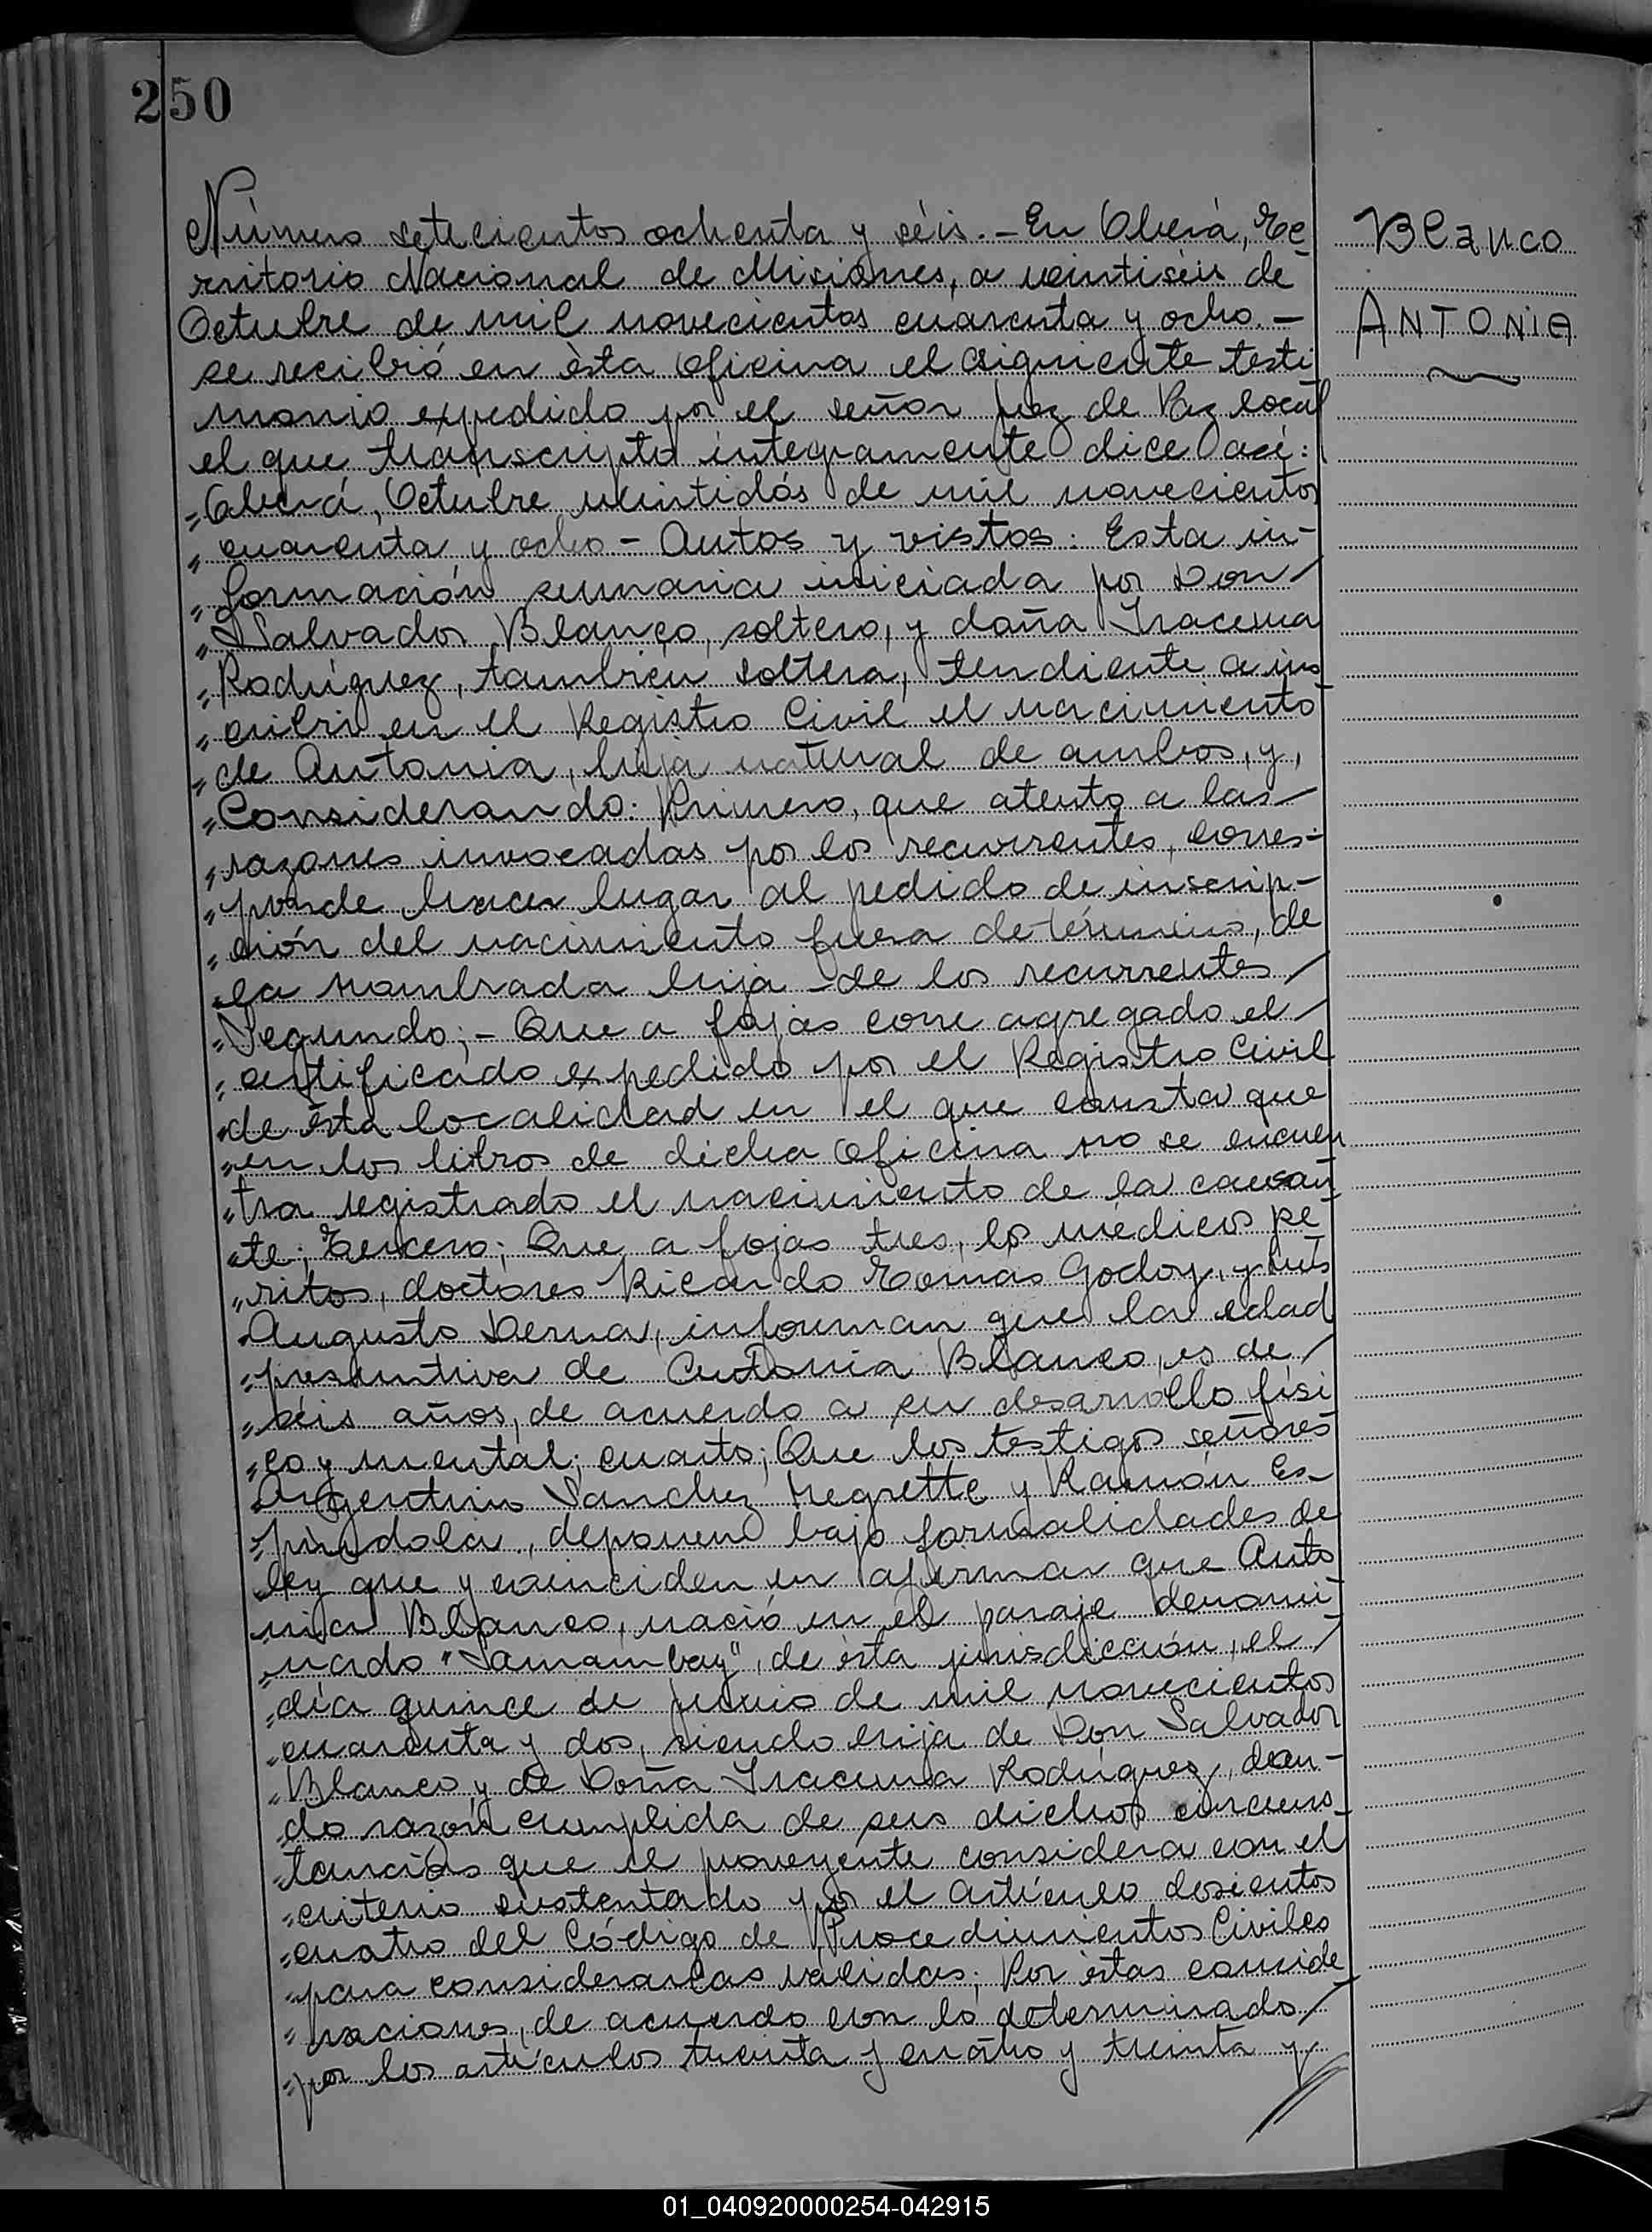 250
Número setecientos ochenta y séis. - En Oberá, Te-
rritorio Nacional de Misiones, a veintiséis de
Octubre de mil novecientos cuarenta y ocho. -
se recibió en ésta Oficina el siguiente testi
monio expedido por el señor Juez de Paz local
el que transcripto integramente dice así:
"Oberá, Octubre veintidós de mil novecientos
" cuarenta y ocho - Autos y vistos: Esta in-
" formación sumaria iniciada por Don /
" Salvador Blanco, soltero, y doña Iracema
" Rodríguez, también soltera, tendiente a ins
" cribir en el Registro Civil el nacimiento
" de Antonia, hija natural de ambos, y,
" Considerando: Primero, que atento a las /
" razones invocadas por los recurrentes, corres-
" ponde hacer lugar al pedido de inscrip-
" ción del nacimiento fuera de término, de
" la nombrada hija de los recurrentes /
" Segundo; - Que a fojas corre agregado el /
" certificado expedido por el Registro Civil
" de ésta localidad en el que consta que
" en los libros de dicha Oficina no se encuen
" tra registrado el nacimiento de la causan-
" te; Tercero; Que a fojas tres, los médicos pe-
" ritos, doctores Ricardo Tomás Godoy, y Luis
" Augusto Derna, informan que la edad
" presuntiva de Antonia Blanco, es de /
" séis años, de acuerdo a su desarrollo físi
" co y mental; cuarto; Que los testigos señores
" Argentino Sanchez Negrette y Ramón Es-
" píndola, deponen bajo formalidades de
" ley que y coinciden en afirmar que Anto
" nia Blanco, nació en el paraje denomi-
" nado "Samambay", de ésta jurisdicción, el /
" día quince de junio de mil novecientos
" cuarenta y dos, siendo hija de Don Salvador
" Blanco y de Doña Iracema Rodríguez, dan-
" do razón cumplida de sus dichos circuns-
" tancias que el proveyente considera con el
" criterio sustentado por el artículo dosientos
" cuatro del Código de Procedimientos Civiles
" para considerarlas validas; Por éstas conside
" raciones, de acuerdo con lo determinado /
" por los artículos treinta y cuatro y treinta y
Blanco
ANTONIA
01_040920000254-042915